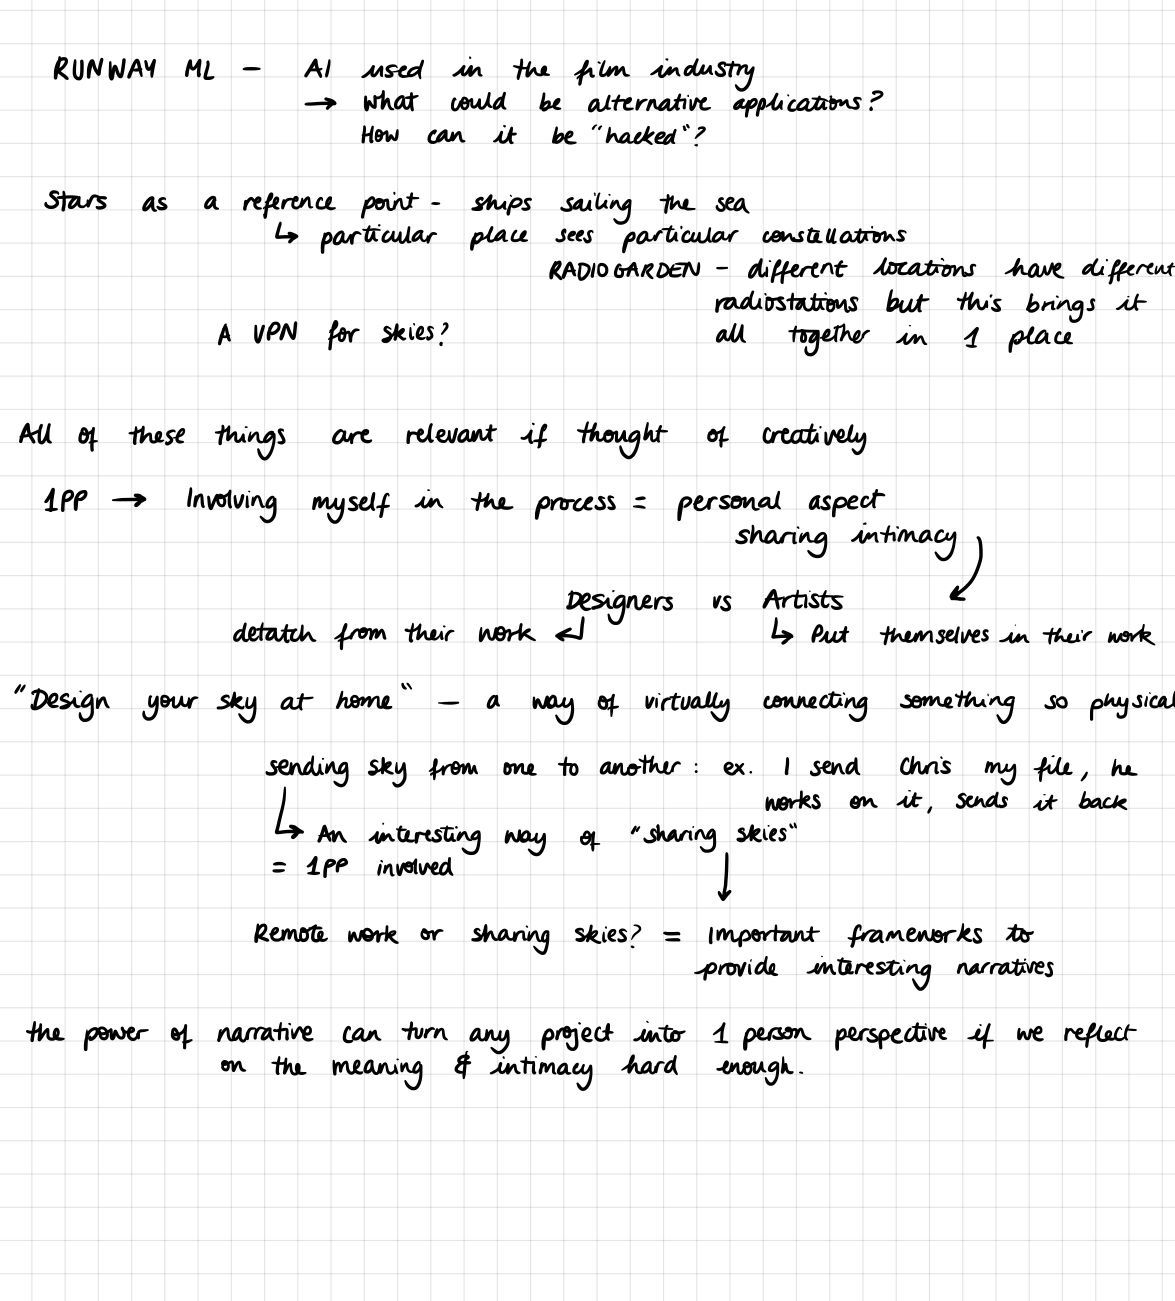 RUNWAY ML — AI used in the film industry
→ what could be alternative applications?
How can it be "hacked"?
Stars as a reference point - ships sailing the sea
↳ particular place sees particular constellations
RADIO GARDEN - different locations have different
radiostations but this brings it
A VPN for skies? all together in 1 place
All of these things are relevant if thought of creatively
1PP → Involving myself in the process = personal aspect
sharing intimacy
Designers vs Artists
detatch from their work ↲ ↳ Put themselves in their work
"Design your sky at home" — a way of virtually connecting something so physical
sending sky from one to another: ex. I send Chris my file, he
works on it, sends it back
↳ An interesting way of "sharing skies"
= 1PP involved
Remote work or sharing skies? = Important frameworks to
provide interesting narratives
the power of narrative can turn any project into 1 person perspective if we reflect
on the meaning & intimacy hard enough.